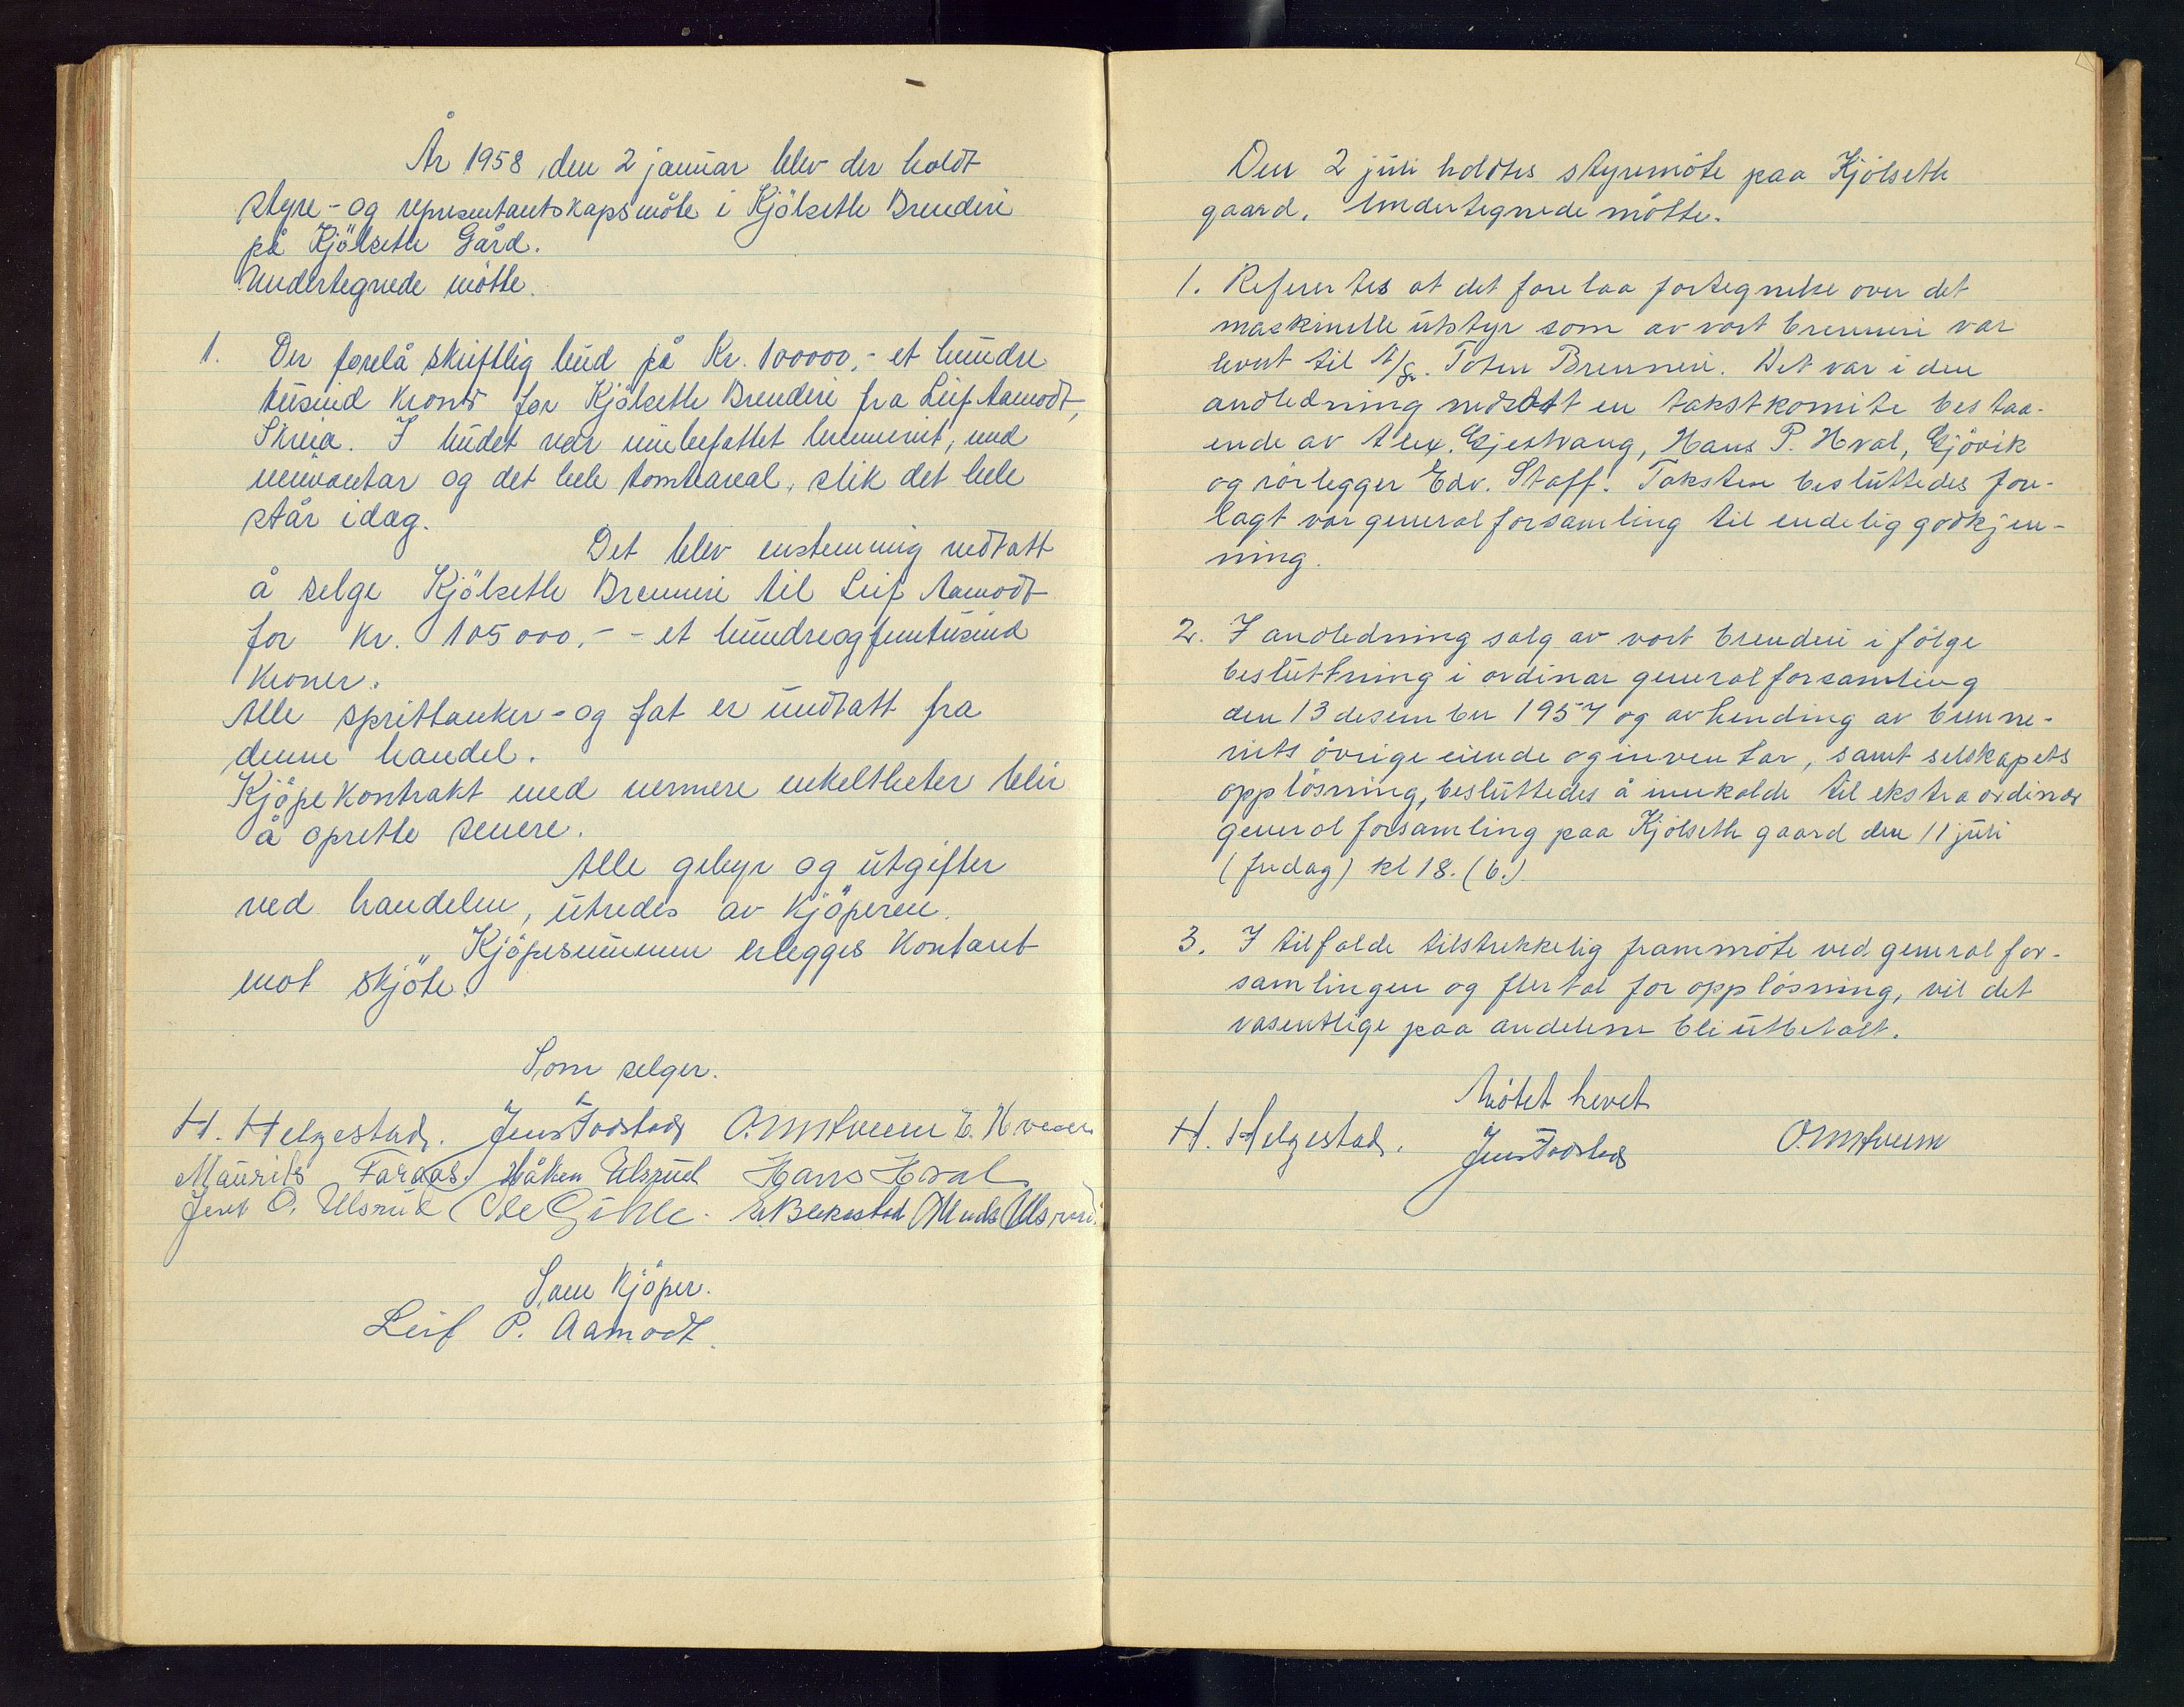 År 1958, den 2 januar blev der holdt
styre- og representantskapsmöte i Kjölseth Brenderi
på Kjölseth Gård.
Undertegnede mötte.
1. Der forelå skriftlig bud på Kr. 100000,- et hundre
tusind kroner for Kjölseth Brenderi fra Leif Aamodt,
Skreia. I budet var innbefattet brenneriet, med
inventar og det hele tomtareal, slik det hele
står idag.
Det blev enstemmig vedtatt
å selge Kjölseth Brenneri til Leif Aamodt
for Kr. 105 000,- - et hundreogfemtusind
Kroner.
Alle sprittanker- og fat er undtatt fra
denne handel.
Kjöpekontrakt med nermere enkeltheter blir
å oprette senere.
Alle gebyr og utgifter
ved handelen, utredes av Kjöperen.
Kjöpesummen erlegges Kontant
mot skjöte.
Som selger.
H. Helgestad. Jens Fodstad O. E.
Maurits Faraas. Håken Ulsrud Hans Hval
Jens O. Ulsrud Ole Gihle. Ulsrud.
Som Kjöper.
Leif P. Aamodt.
Den 2 juli holdtes styremöte paa Kjölseth
gaard. Undertegnede mötte.
1. Referertes at det forelaa fortegnelse over det
maskinelle utstyr som av vort brenneri var
levert til A/S. Toten Brenneri. Det var i den
andledning nedsatt en takstkomite bestaa-
ende av Alex. Gjestvang, Hans P. Hval, Gjövik
og rörlegger Edv. Staff. Taksten besluttedes fore-
lagt vor generalforsamling til endelig godkjen-
ning.
2. I andledning salg av vort brenderi i fölge
besluttning i ordinær generalforsamling
den 13 desember 1957 og avhending av brenne-
riets övrige eiende og inventar, samt selskapets
opplösning, besluttedes å innkalde til ekstraordinær
generalforsamling paa Kjölseth gaard den 11 juli
(fredag) kl 18. (6.)
3. I tilfalde tilstrekkelig frammöte ved generalfor-
samlingen og flertal for opplösning, vil det
vasentlige paa andelene bli utbetalt.
Mötet hevet
H. Helgestad. Jens Fodstad O.